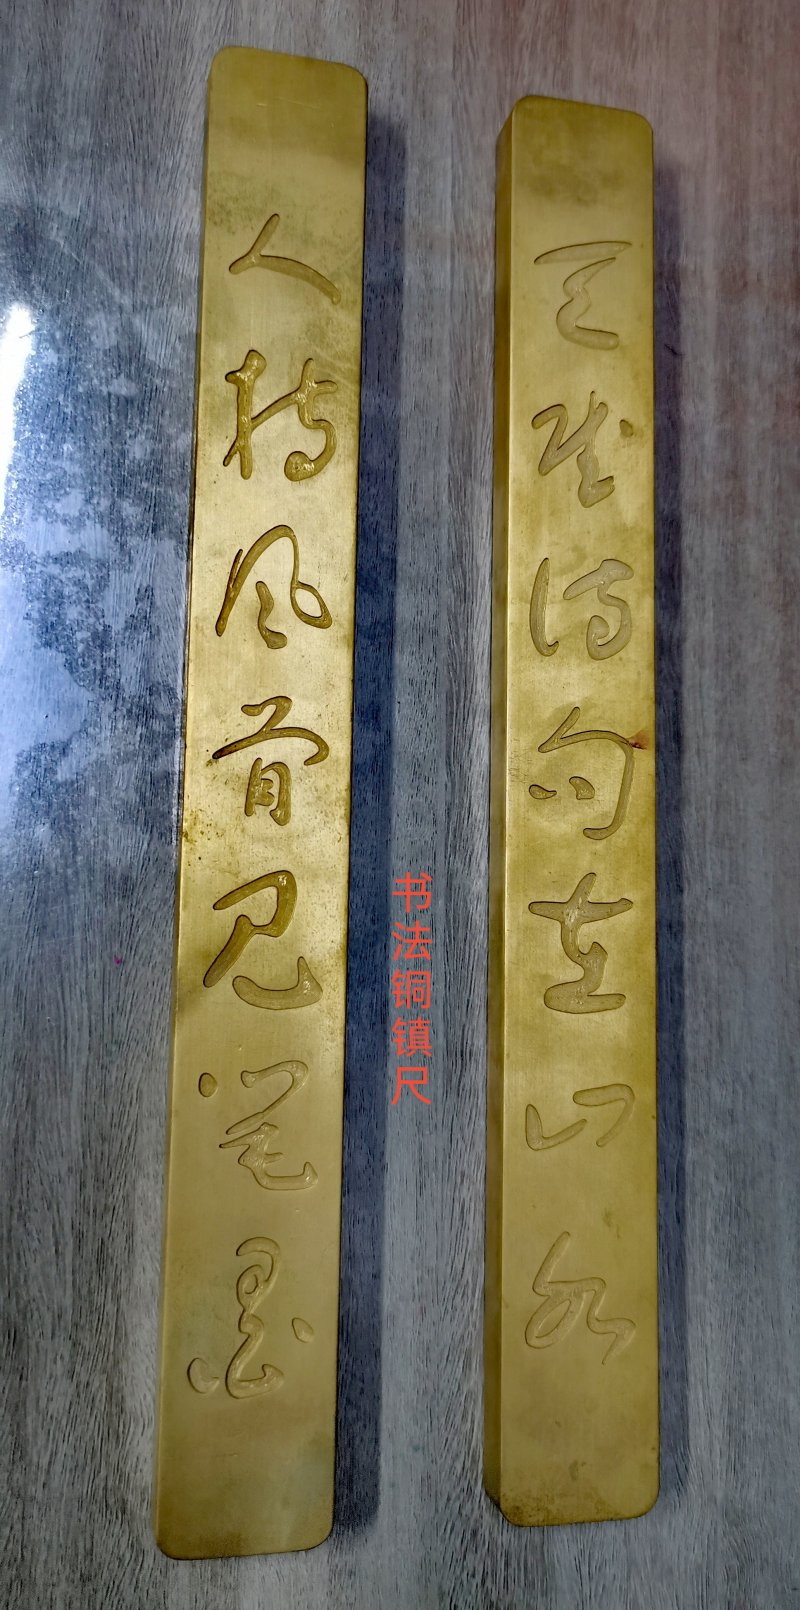 天成诗句在山水
人持风骨见笔墨
书法铜镇尺